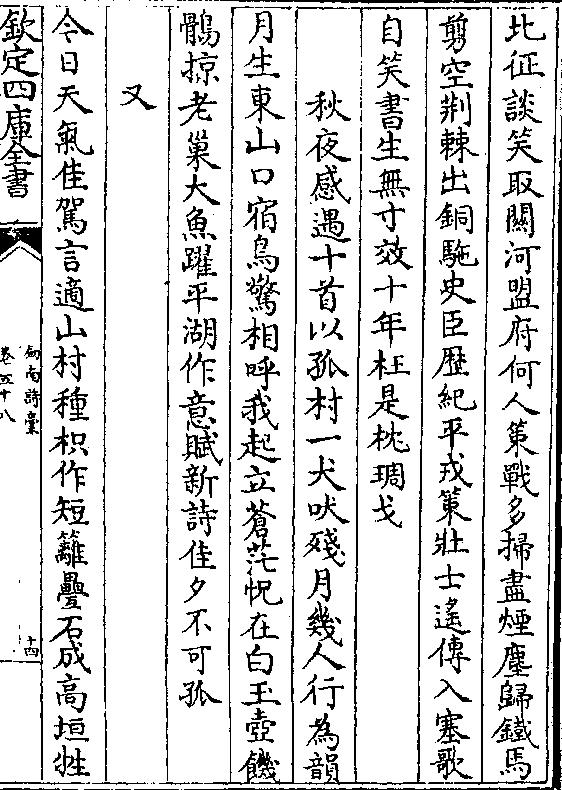 比征談笑取關河盟府何人策戰多掃盡煙塵歸鐵馬
剪空荆棘出銅駞史臣歴紀平戎策壯士遙傳入塞歌
自笑書生無寸效十年枉是枕琱戈
秋夜感遇十首以孤村一犬吠殘月幾人行為韻
月生東山口宿鳥驚相呼我起立蒼茫怳在白玉壺饑
鶻掠老巢大魚躍平湖作意賦新詩佳夕不可孤
又
今日天氣佳駕言適山村種枳作短籬疊石成高垣牲
欽定四庫全書
劒南詩藁
卷五十八
十四